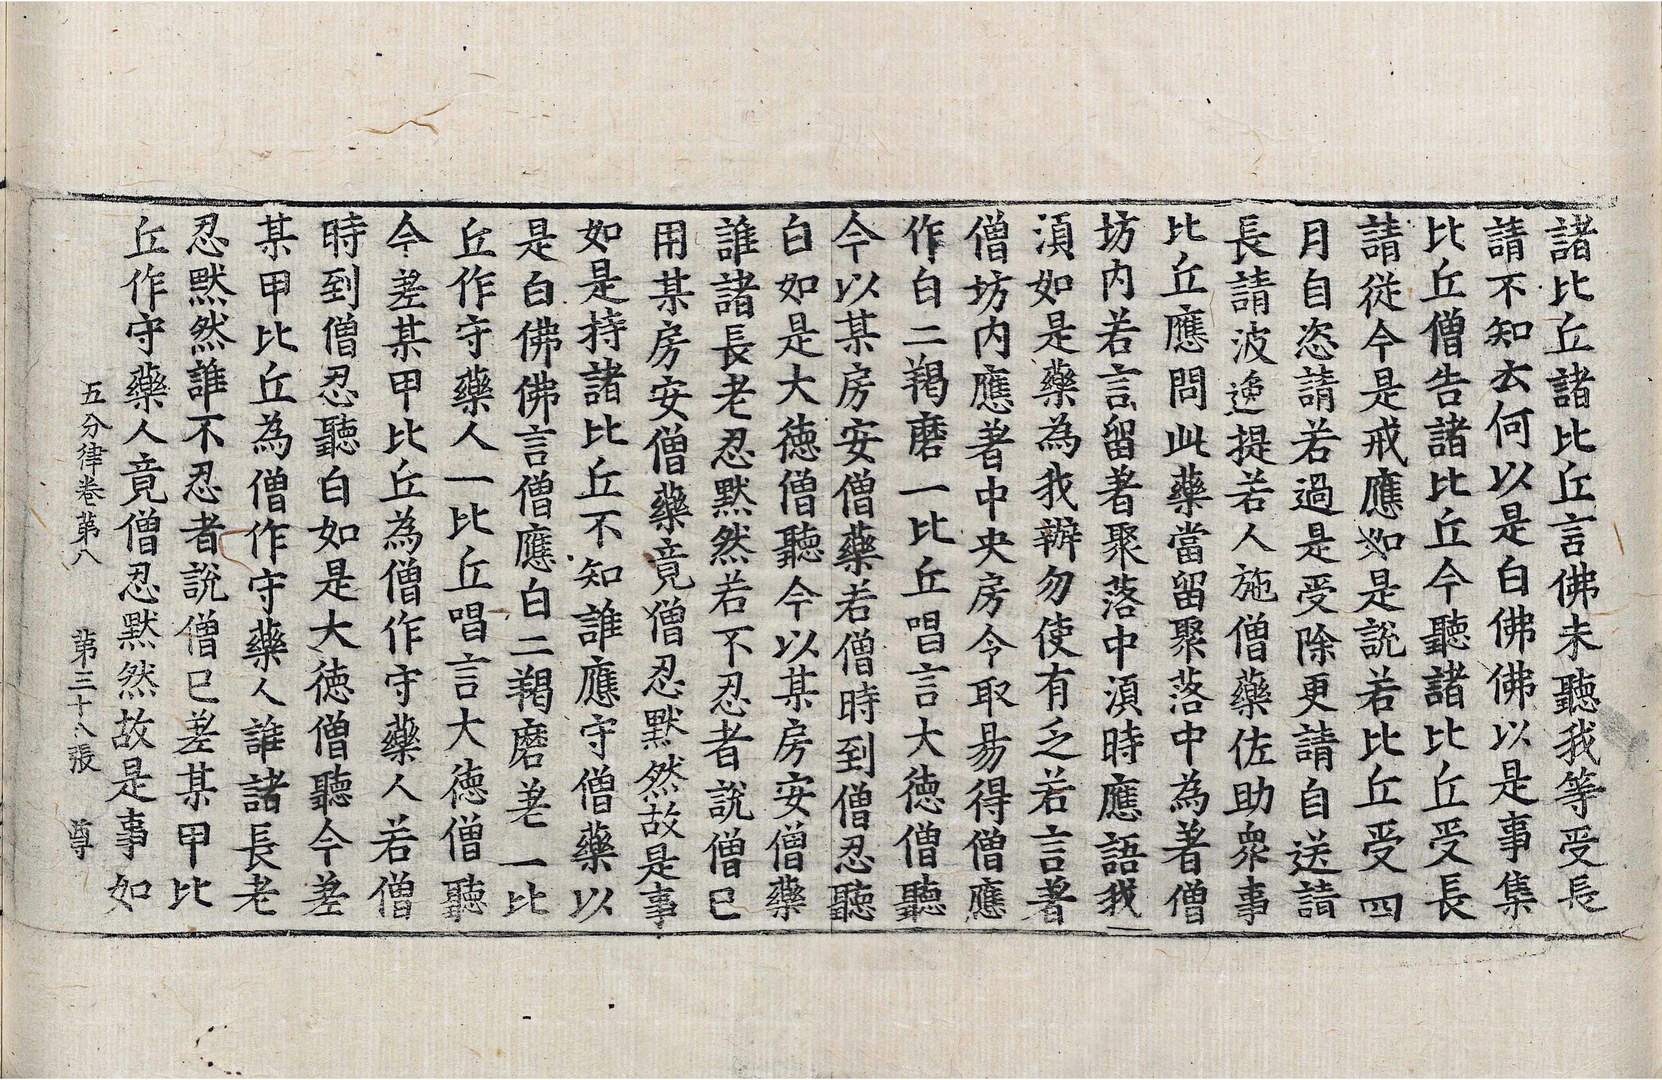 諸比丘諸比丘言佛未聽我等受長
請不知云何以是白佛佛以是事集
比丘僧告諸比丘今聽諸比丘受長
請從今是戒應如是說若比丘受四
月自恣請若過是受除更請自送請
長請波逸提若人施僧藥佐助衆事
比丘應問此藥當留聚落中為著僧
坊内若言留著聚落中湏時應語我
湏如是藥為我辦勿使有乏若言著
僧坊内應著中央房令取易得僧應
作白二羯磨一比丘唱言大徳僧聽
今以某房安僧藥若僧時到僧忍聽
白如是大徳僧聽今以某房安僧藥
誰諸長老忍默然若不忍者說僧已
用某房安僧藥竟僧忍默然故是事
如是持諸比丘不知誰應守僧藥以
是白佛佛言僧應白二羯磨差一比
丘作守藥人一比丘唱言大徳僧聽
今差某甲比丘為僧作守藥人若僧
時到僧忍聽白如是大徳僧聽今差
某甲比丘為僧作守藥人誰諸長老
忍默然誰不忍者說僧已差某甲比
丘作守藥人竟僧忍默然故是事如
五分律卷第八 第三十八張 尊